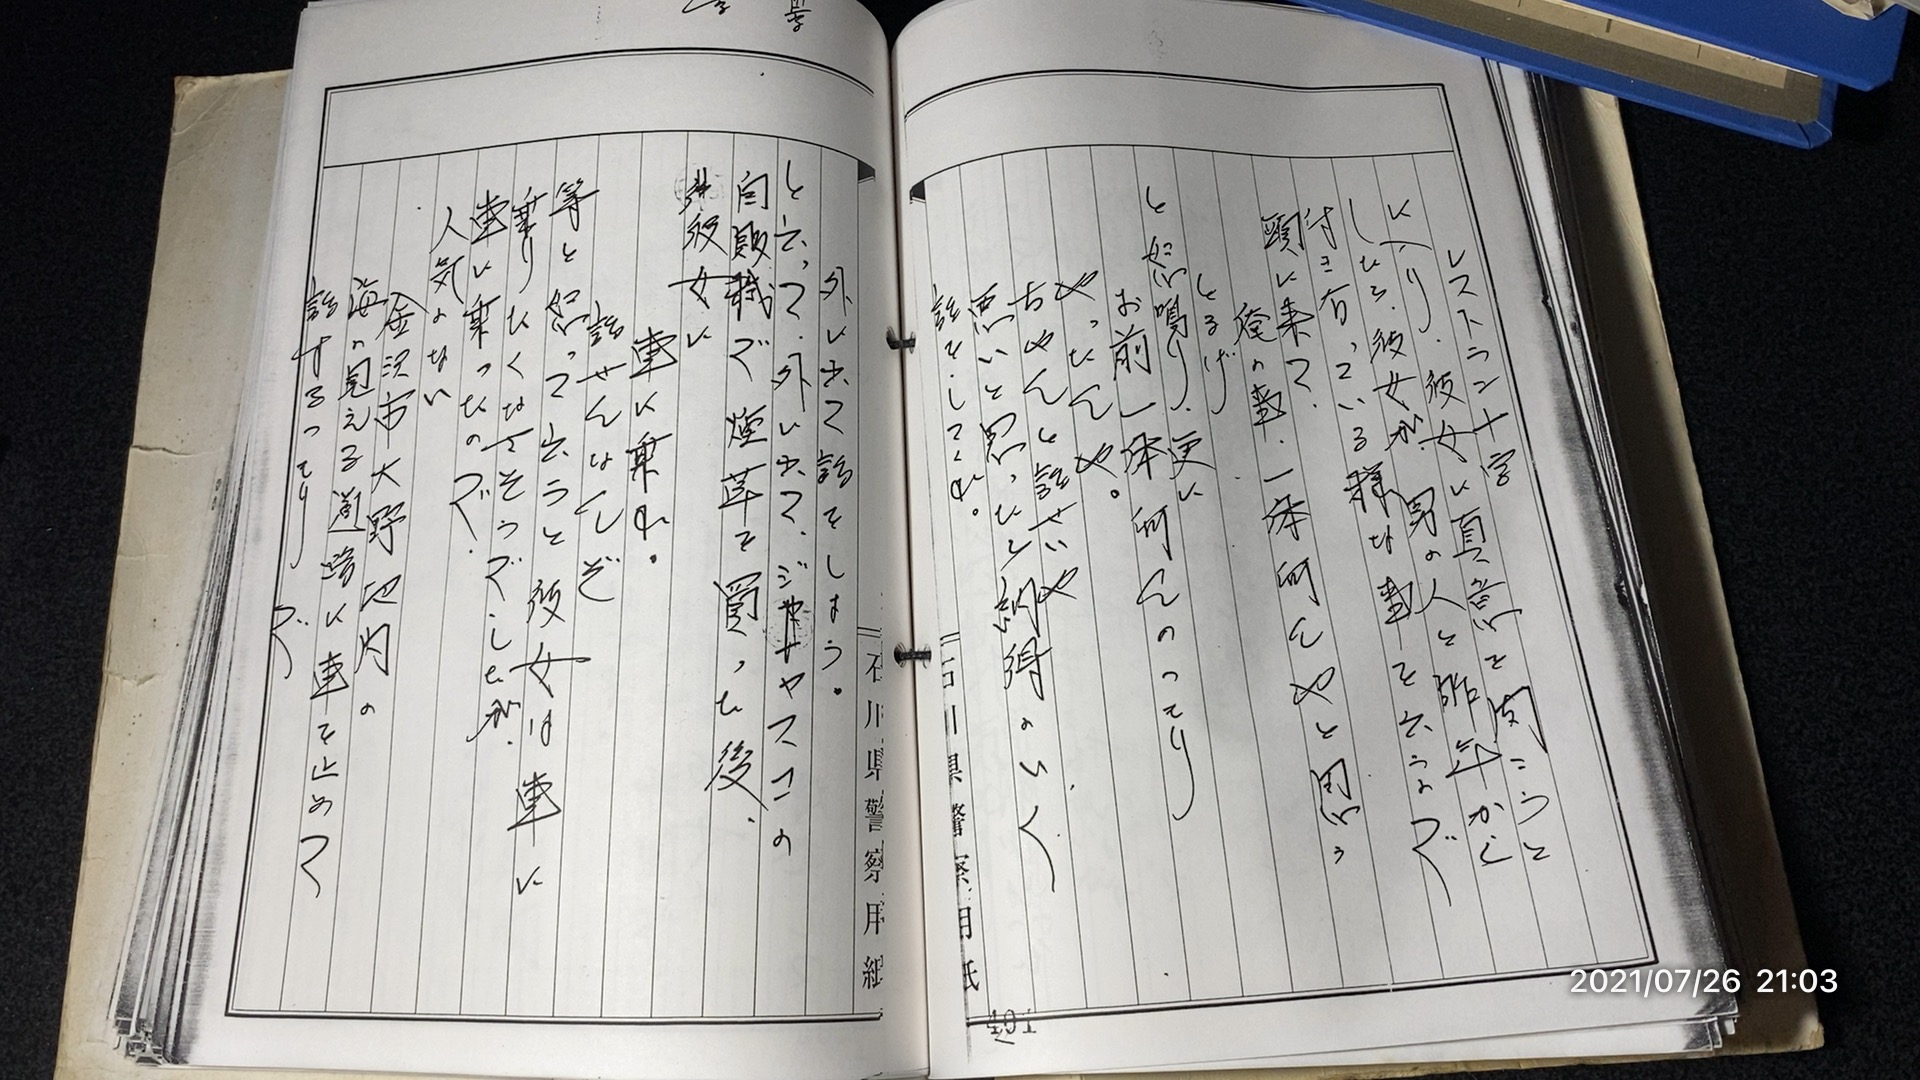 レストラン十字
に入り、彼女に真意を聞こうと
したら、彼女が、男の人と昨年から
付き合っている様な事を云うので
頭に来て、
俺の事、一体何んやと思う
とるげ
と怒鳴り、更に
お前一体何んのつもり
やったんや。
ちゃんと話せいや
悪いと思ったら納得のいく
話を、してくれ。
石川県警察用紙
401
外に出て話をしよう。
と云って、外に出て、ジャスコの
自販機で煙草を買った後、
彼女に
車に乗れ。
話せんなんぞ
等と怒って云うと彼女は車に
乗りたくなさそうでしたが、
車に乗ったので、
人気のない
金沢市大野地内の
海の見える道路に車を止めて
話するつもりで
石川県警察用紙
2021/07/26 21:03